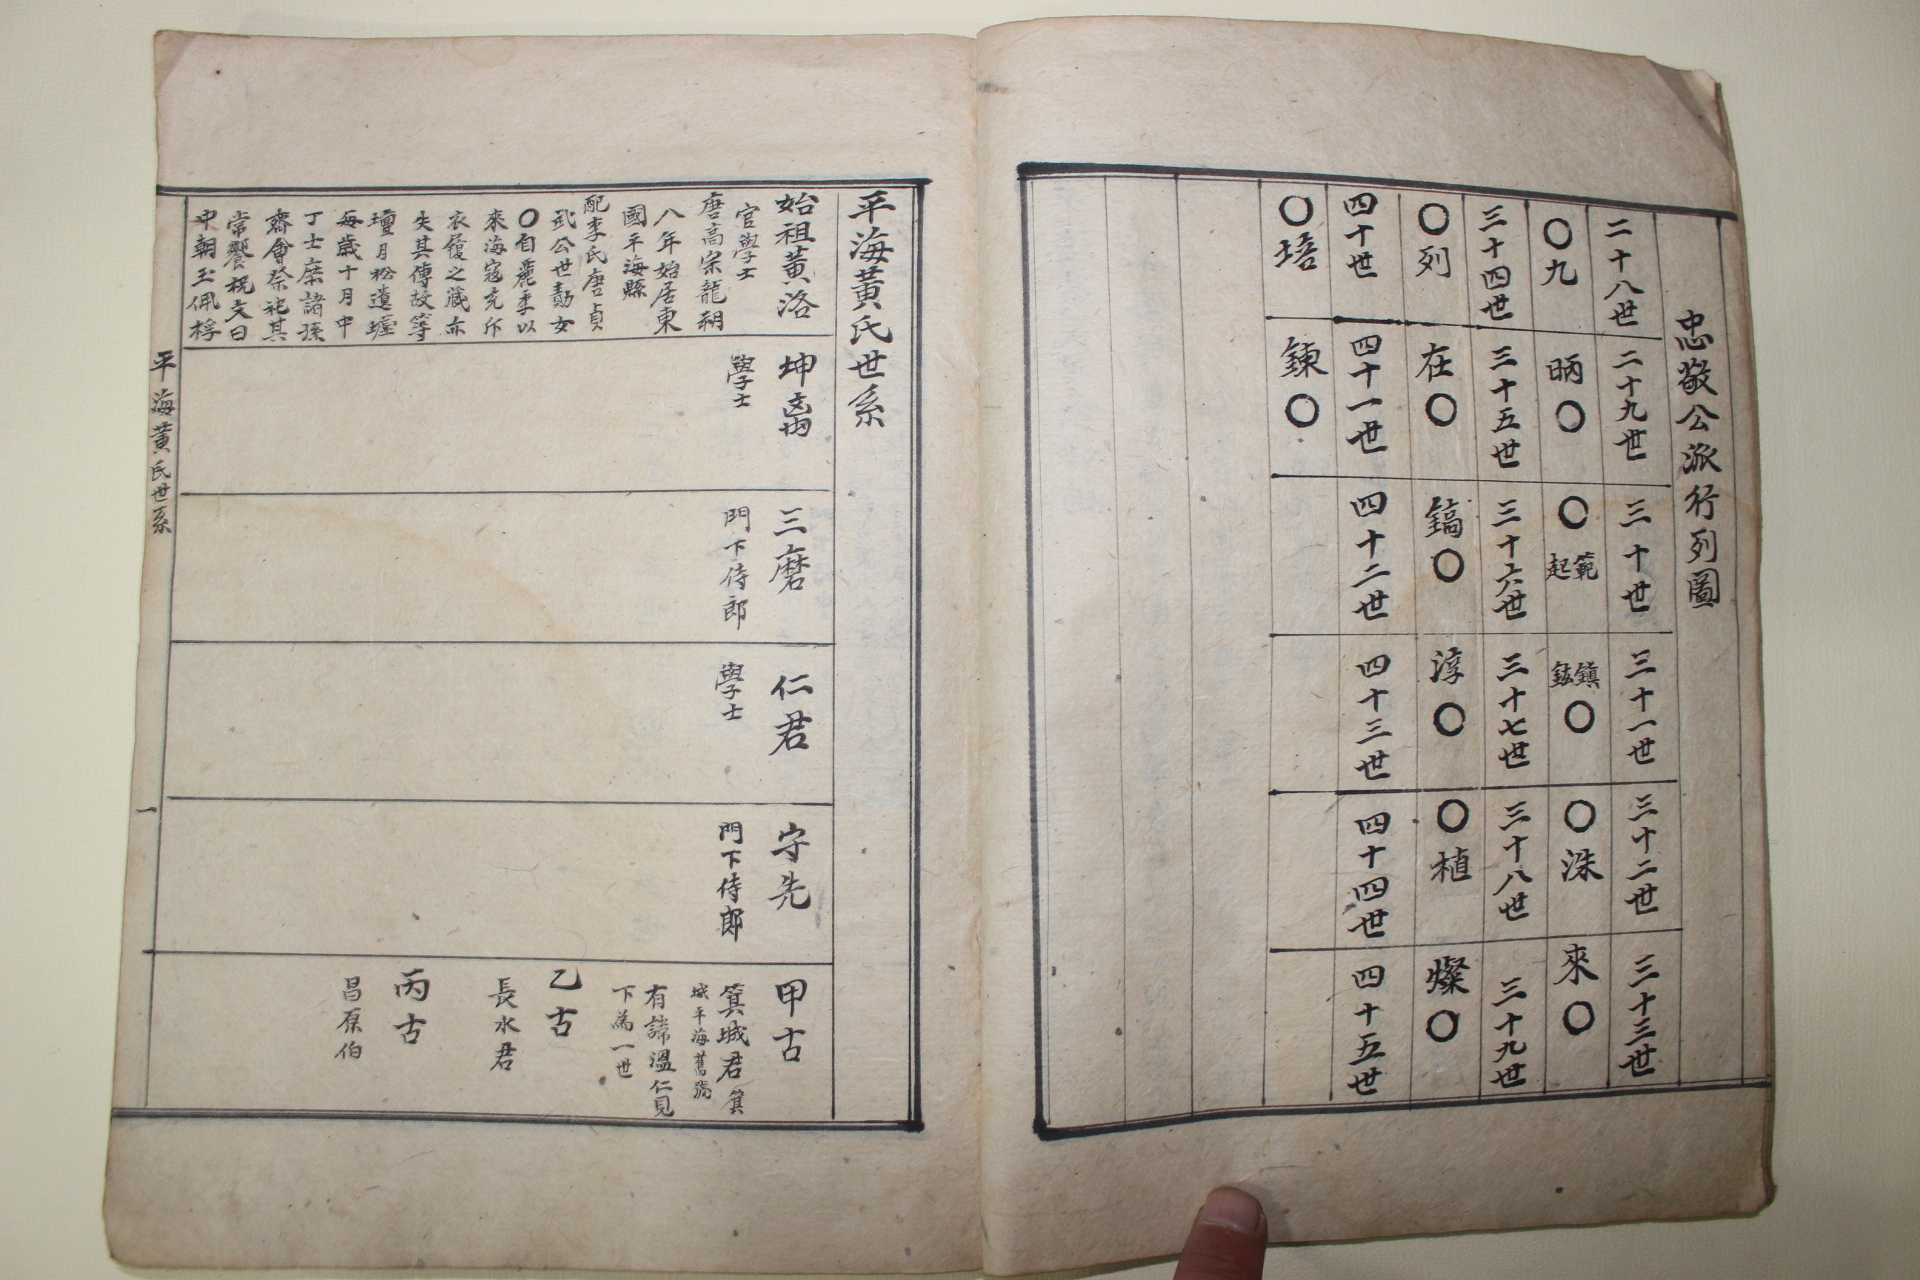 忠敬公派行列圖
二十八世
二十九世
三十世
三十一世
三十二世
三十三世
〇九
昞〇
〇範起
鎮鉉〇
〇洙
來〇
三十四世
三十五世
三十六世
三十七世
三十八世
三十九世
〇列
在〇
鎬〇
淳〇
〇植
燦〇
四十世
四十一世
四十二世
四十三世
四十四世
四十五世
〇培
鍊〇
平海黃氏世系
始祖黃洛
官學士
唐高宗龍朔
八年始居東
國平海縣
配李氏唐貞
武公世勣女
〇自麗季以
來海寇充斥
衣履之藏亦
失其傳故等
壇月松遺墟
每歲十月中
丁士庶諸孫
齋會祭祀其
常饗祝文曰
中朝玉佩桴
坤
學士
三磨
門下侍郎
仁君
學士
守先
門下侍郎
甲古
箕城君箕
城平海舊號
有諱溫仁見
下為一世
乙古
長水君
丙古
昌原伯
平海黃氏世系
一